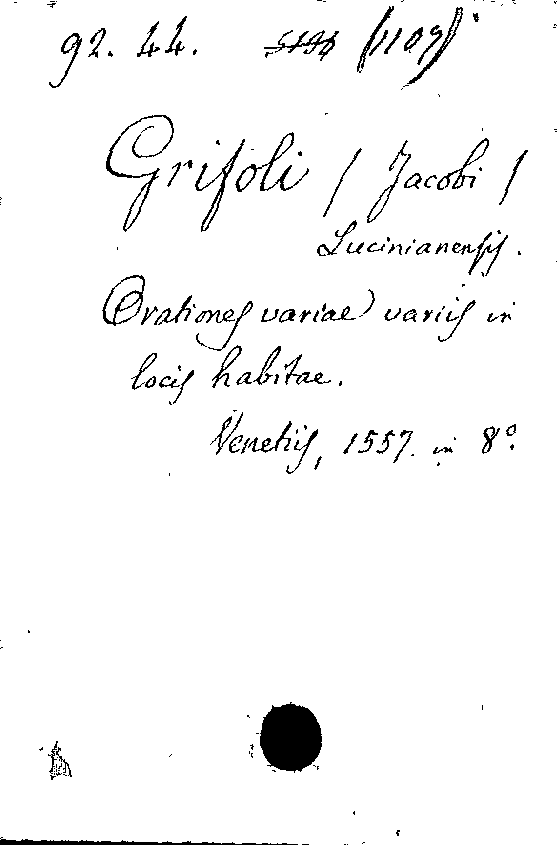 92. 44. (1107)
Grifoli / Jacobi /
Lucinianensis.
Orationes variae variis in
locis habitae.
Venetiis, 1557. in 8°.